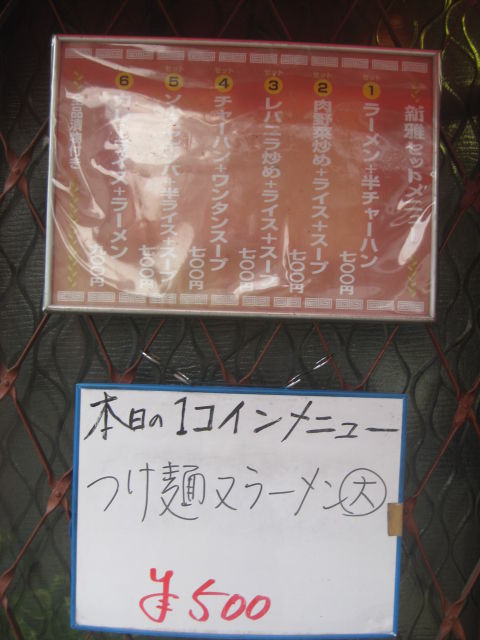 新雅セットメニュー
セット
1
ラーメン+半チャーハン
七〇〇円
セット
2
肉野菜炒め+ライス+スープ
七〇〇円
セット
3
レバニラ炒め+ライス+スープ
七〇〇円
セット
4
チャーハン+ワンタンスープ
七〇〇円
セット
5
半ライス+スープ
七〇〇円
6
ライス+ラーメン
〇〇円
本日の1コインメニュー
つけ麺又ラーメン大
¥500